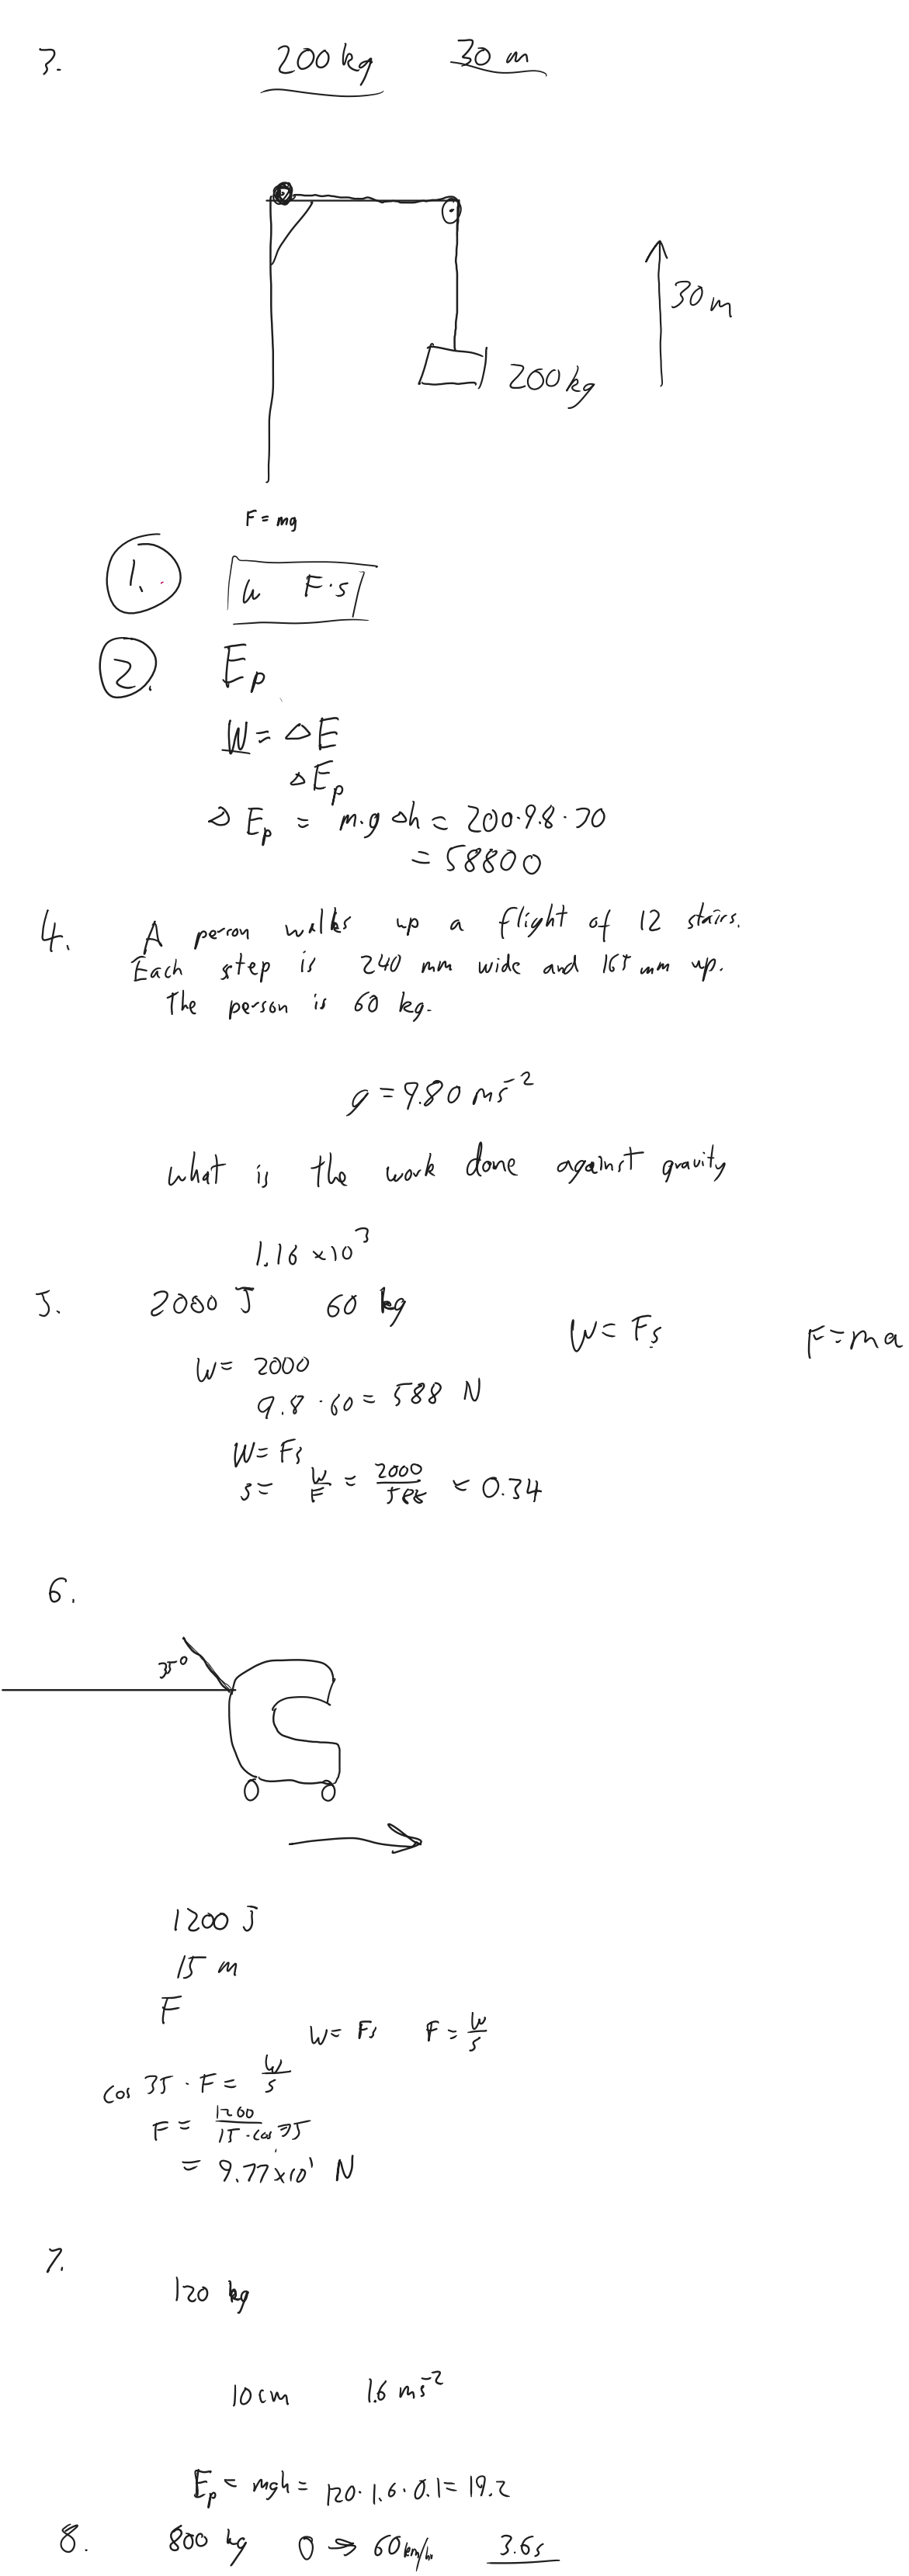 3. 200 kg 30 m
30 m
200 kg
F = mg
1. W F·s
2. Ep
W = △E
△Ep
△Ep = m·g △h = 200·9.8·30
= 58800
4. A person walks up a flight of 12 stairs.
Each step is 240 mm wide and 165 mm up.
The person is 60 kg.
g = 9.80 ms⁻²
what is the work done against gravity
1.16 ×10³
5. 2000 J 60 kg
W = Fs F = ma
W = 2000
9.8 · 60 = 588 N
W = Fs
s = W/F = 2000/588 = 0.34
6.
35°
1200 J
15 m
F
W = Fs F = W/s
cos 35 · F = W/s
F = 1200/15·cos 35
= 9.77×10¹ N
7.
120 kg
10 cm 1.6 ms⁻²
Ep = mgh = 120·1.6·0.1 = 19.2
8. 800 kg 0 → 60 km/h 3.6s